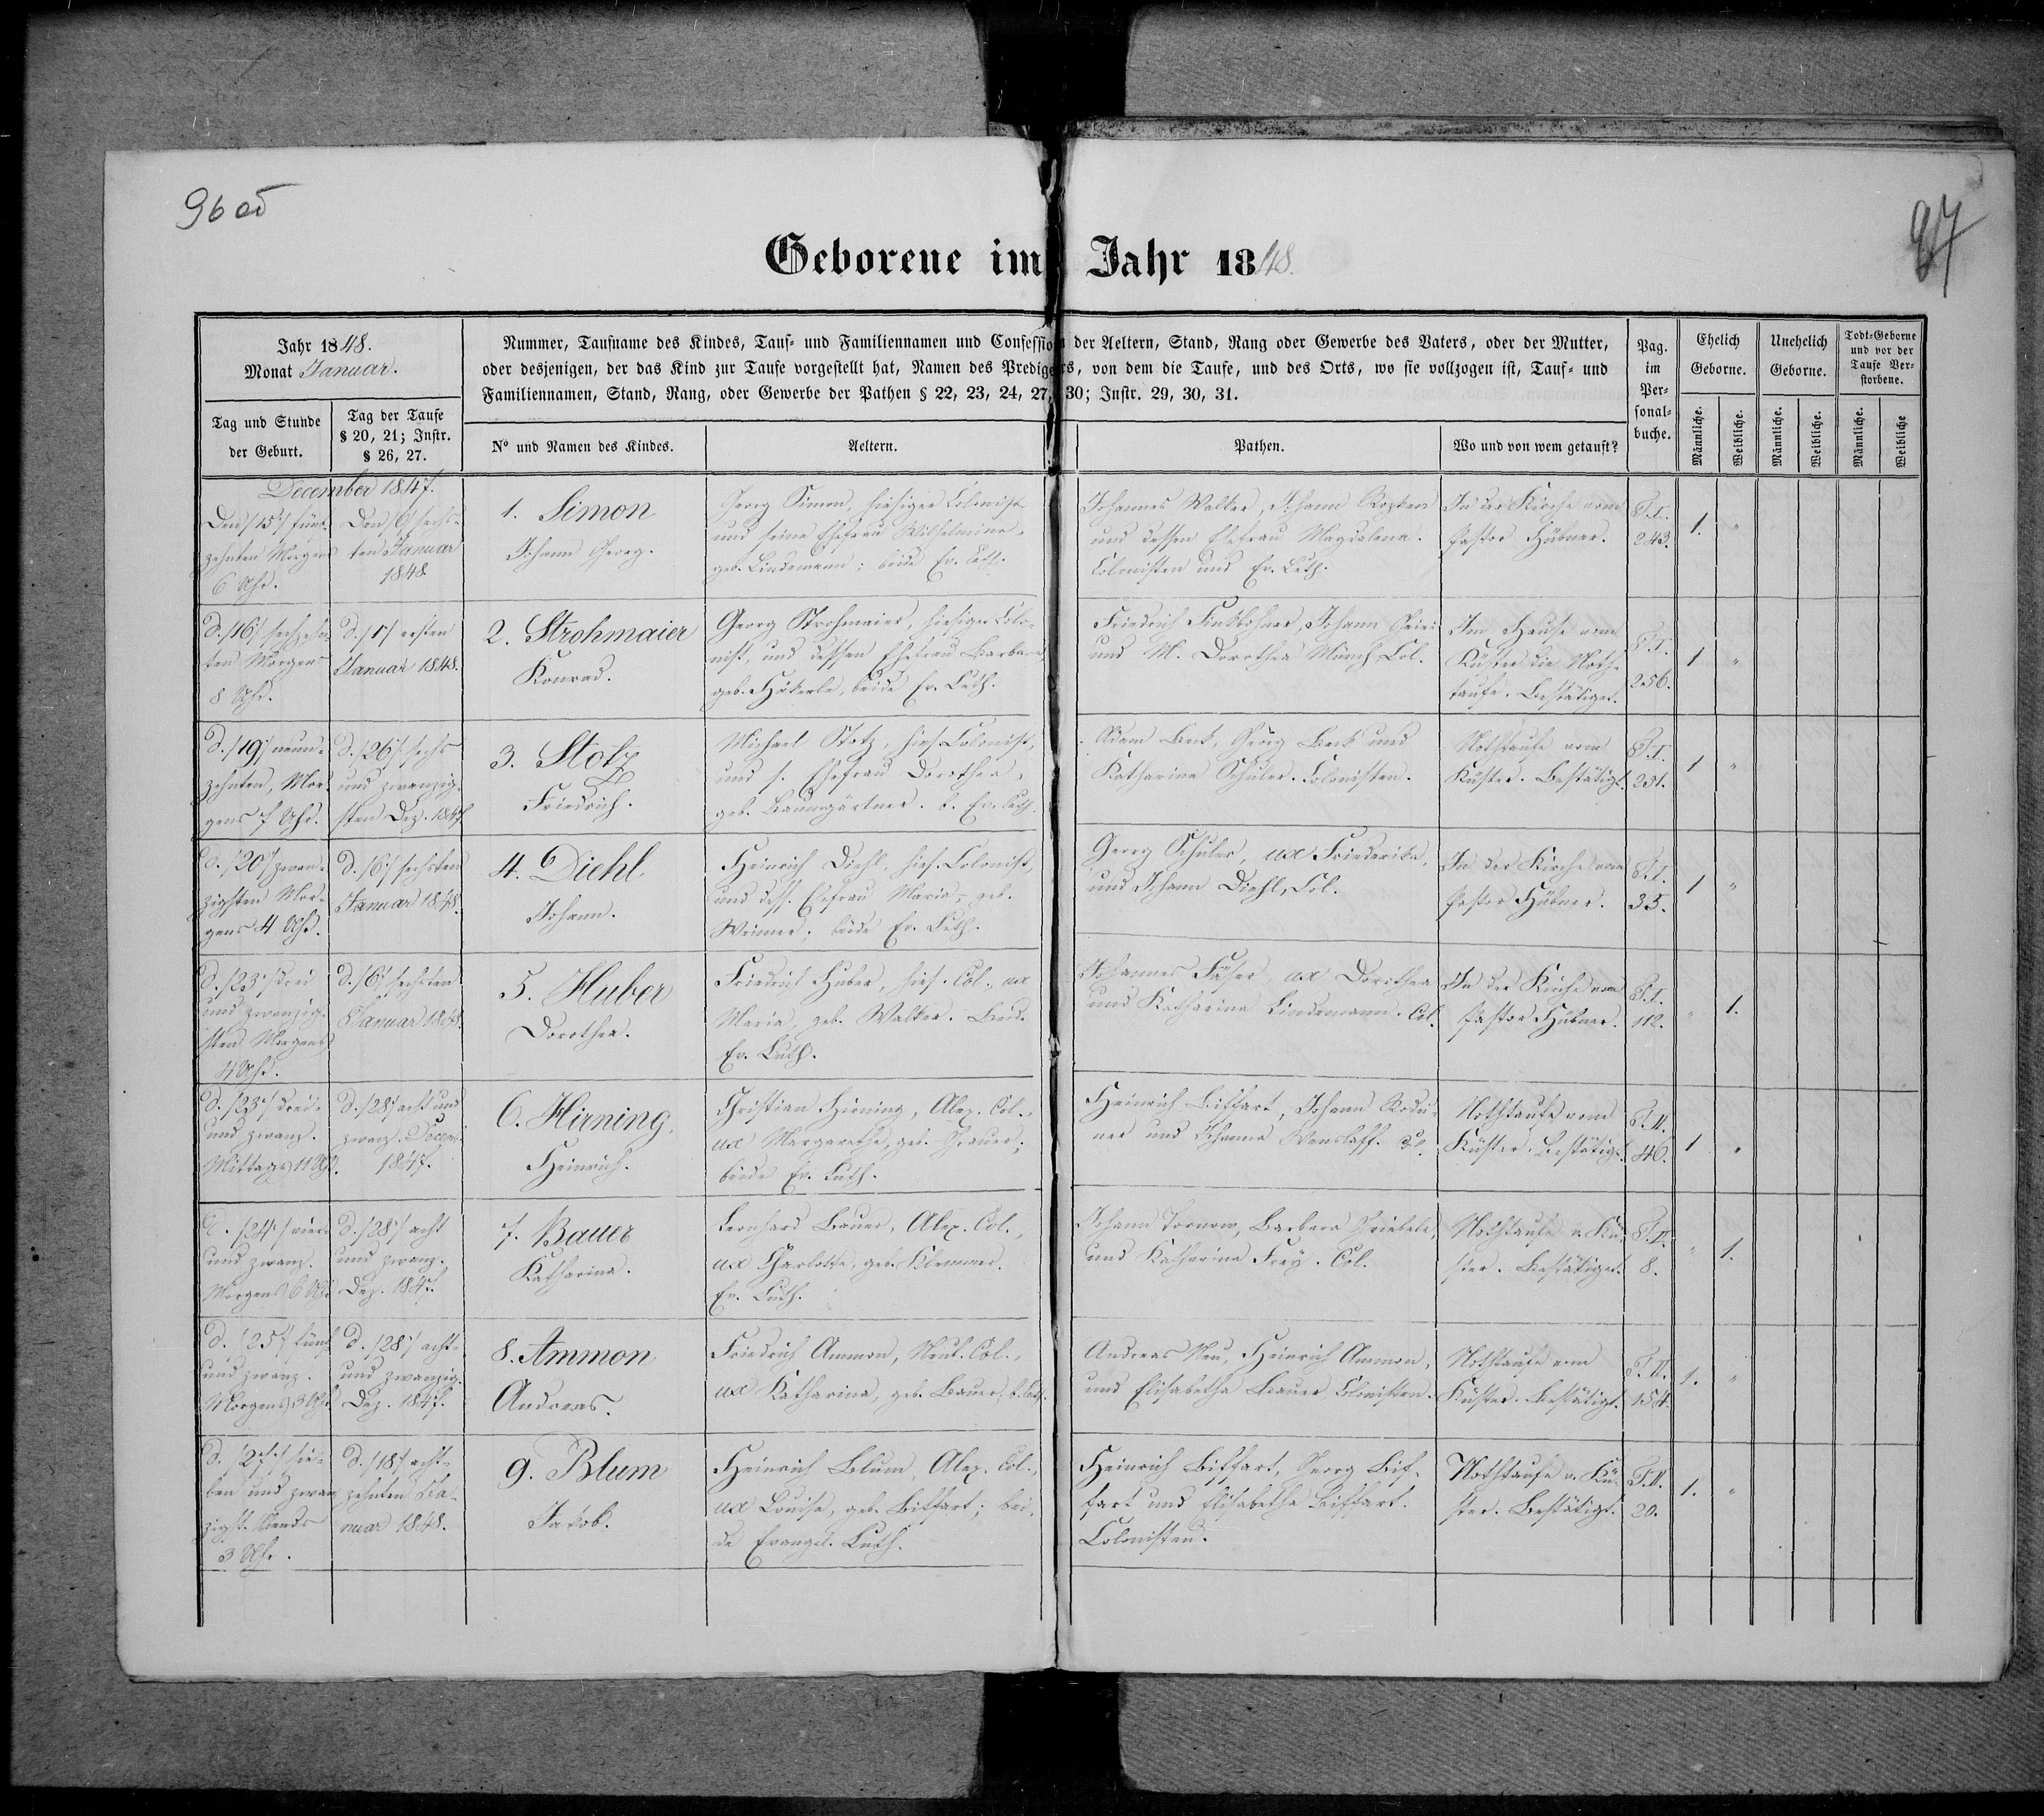 96 об
97
Geborene im Jahr 1848.
Jahr 1848.
Monat Januar.
Nummer, Taufname des Kindes, Tauf- und Familiennamen und Confession der Aeltern, Stand, Rang oder Gewerbe des Vaters, oder der Mutter,
oder desjenigen, der das Kind zur Taufe vorgestellt hat, Namen des Predigers, von dem die Taufe, und des Orts, wo sie vollzogen ist, Tauf- und
Familiennamen, Stand, Rang, oder Gewerbe der Pathen § 22, 23, 24, 27, 30; Instr. 29, 30, 31.
Pag.
im
Per-
sonal-
buche.
Ehelich
Geborne.
Unehelich
Geborne.
Todt-Geborne
und vor der
Taufe Ver-
storbene.
Tag und Stunde
der Geburt.
Tag der Taufe
§ 20, 21; Instr.
§ 26, 27.
No und Namen des Kindes.
Aeltern.
Pathen.
Wo und von wem getauft?
Männliche.
Weibliche.
Männliche.
Weibliche.
Männliche.
Weibliche
December 1847.
Den /15/ fünf-
zehnten Morgens
6 Uhr.
Den /6/ sechs-
ten Januar
1848
1. Simon
Johann Georg.
Georg Simon, hiesiger Colonist
und seine Ehefrau Wilhelmine,
geb. Lindemann; beide Ev. Luth.
Johannes Walker, Johann
und dessen Ehefrau Magdalena.
Colonisten und Ev. Luth.
In der Kirche vom
Pastor Hübner.
T. I.
243.
1. "
d. /16/ sechzehn-
ten Morgens
8 Uhr.
d. /1/ ersten
Januar 1848.
2. Strohmaier
Konrad.
Georg Strohmaier, hiesiger Colo-
nist, und dessen Ehefrau Barbara,
geb. Häberle, beide Ev. Luth.
Friedrich Johann
und M. Dorothea Münch Col.
Im Hause vom
Küster die Noth-
taufe. Bestätiget.
T. I.
256.
1 "
d. /19/ neun-
zehnten, Mor-
gens 7 Uhr.
d. /26/ sechs
und zwanzig-
sten Dez. 1847
3. Stotz
Friedrich.
Michael Stotz, hies. Colonist,
und s. Ehefrau Dorothea,
geb. Baumgärtner. b. Ev. Luth.
Adam Beck, Georg Beck und
Katharina Schüler. Colonisten.
Nothtaufe vom
Küster. Bestätigt.
T. I.
231.
1 "
d. /20/ zwan-
zigsten Mor-
gens 4 Uhr.
d. /6/ sechsten
Januar 1848.
4. Diehl
Johann.
Heinrich Diehl, hies. Colonist,
und dess. Ehefrau Maria, geb.
Weimer, beide Ev. Luth.
Georg Schüler, ux Friederika,
und Johann Diehl, Col.
In der Kirche vom
Pastor Hübner.
T. I.
35.
1 "
d. /23/ drei
und zwanzig-
sten Morgens
4 Uhr.
d. /6/ sechsten
Januar 1848.
5. Huber
Dorothea.
Friedrich Huber, hies. Col., ux
Maria, geb. Walker. Beid.
Ev. Luth.
Johannes ux Dorothea
und Katharina Lindemann. Col.
In der Kirche vom
Pastor Hübner.
T. I.
112.
" 1.
d. /23/ drei-
und zwanz.
Mittags 11 Uhr.
d. /28/ acht und
zwanz. Decem.
1847.
6. Hirning,
Heinrich.
Christian Hirning, Alex. Col.,
ux Margaretha, geb. Grauer;
beide Ev. Luth.
Heinrich Biffart, Johann
und Johanna Col.
Nothtaufe vom
Küster. Bestätigt.
T. II.
46.
1 "
d. /24/ vier
und zwanz.
Morgens 6 Uhr
d. /28/ acht
und zwanz.
Dez. 1847.
7. Bauer
Katharina.
Leonhard Bauer, Alex. Col.,
ux Charlotte, geb. Klemmer.
Ev. Luth.
Johann Tornow, Barbara
und Katharina Frey. Col.
Nothtaufe v. Kü-
ster. Bestätiget.
T. II.
8.
" 1.
d. /25/ fünf
und zwanz.
Morgens 3 Uhr.
d. /28/ acht-
und zwanzig.
Dez. 1847.
8. Ammon
Andreas.
Friedrich Ammon, Neub. Col.,
ux Katharina, geb. Bauer. b. Luth.
Andreas Neu, Heinrich Ammon,
und Elisabetha Bauer Colonisten.
Nothtaufe vom
Küster. Bestätigt.
T. II.
154.
1. "
d. /27/ sie-
ben und zwan
zigst. Abends
3 Uhr.
d. /18/ acht-
zehnten Ja-
nuar 1848.
9. Blum
Jakob.
Heinrich Blum, Alex. Col.,
ux Louise, geb. Biffart; bei-
de Evangel. Luth.
Heinrich Biffart, Georg Bif-
fart und Elisabetha Biffart.
Colonisten.
Nothtaufe v. Kü-
ster. Bestätigt.
T. II.
20.
1. "